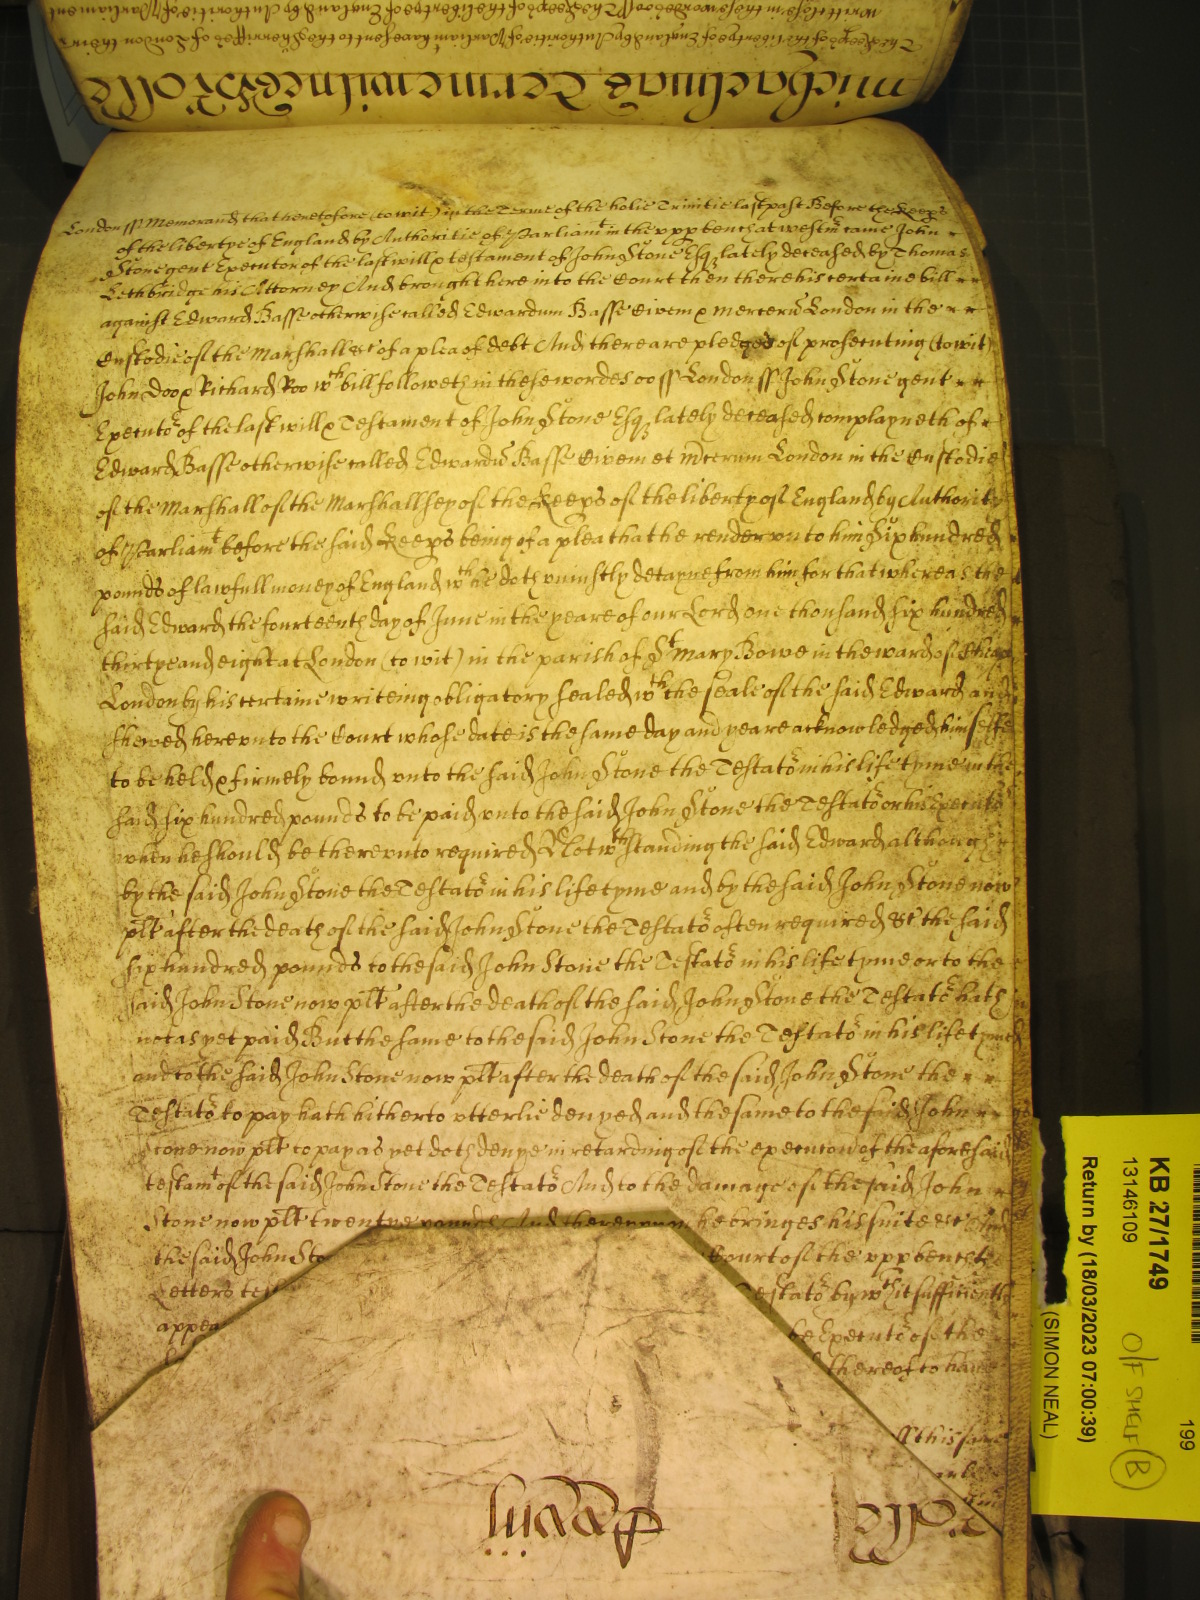 Michaelmas Terme witnes Rolle
London ss Memorand that heretofore (to wit) in the Terme of the holie Trinitie last past Before the Keeps
of the libertye of England by Authoritie of Parliamt in the vpp bench at westm came John
Stone gent Executor of the last will & testament of John Stone Esqz lately deceased by Thomas
Lethbridge his Attorney And brought here into the Court then there his certaine bill
against Edward Basse otherwise called Edwardum Basse Civem & mercerũ London in the
Custodie of the Marshall &c of a plea of debt And there are pledges of prosecuting (to wit)
John Doo & Richard Roo wch bill followeth in these wordes ss London ss John Stone gent
Executor of the last will & Testament of John Stone Esqz lately deceased complayneth of
Edward Basse otherwise called Edwardũ Basse Civem et mcerum London in the Custodie
of the Marshall of the Marshallsey of the Keeps of the liberty of England by Authoritie
of Parliamt before the said Keeps being of a plea that he render vnto him Six hundred
pounds of lawfull money of England wch he doth vniustly detayne from him for that whereas the
said Edward the fourteenth day of June in the yeare of our Lord one thousand six hundred
thirtye and eight at London (to wit) in the parish of St Mary Bowe in the ward of Cheap
London by his certaine writeing obligatory sealed wth the seale of the said Edward and
shewed here vnto the Court whose date is the same day and yeare acknowledged himselfe
to be held & firmely bound vnto the said John Stone the Testator in his life tyme in the
said six hundred pounds to be paid vnto the said John Stone the Testator or his Executor
when he should be therevnto required Notwthstanding the said Edward although
by the said John Stone the Testator in his life tyme and by the said John Stone now
plt after the death of the said John Stone the Testator often required &c the said
six hundred pounds to the said John Stone the Testator in his life tyme or to the
said John Stone now plt after the death of the said John Stone the Testator hath
not as yet paid But the same to the said John Stone the Testator in his life tyme
and to the said John Stone now plt after the death of the said John Stone the
Testator to pay hath hitherto vtterlie denyed and the same to the said John
Stone now plt to pay as yet doth denye in retarding of the execucion of the aforesaid
testamt of the said John Stone the Testator And to the damage of the said John
Stone now plt twentye pounds And therevpon he bringes his suite &c And
the said John Sto Court of the vpp bench
Letters test estator by wch it sufficiently
appea be Executor of the
thereof to haue
this same
Rolle
KB 27/1749
13146109
Return by (18/03/2023 07:00:39)
(SIMON NEAL)
199
O/F SHELF B